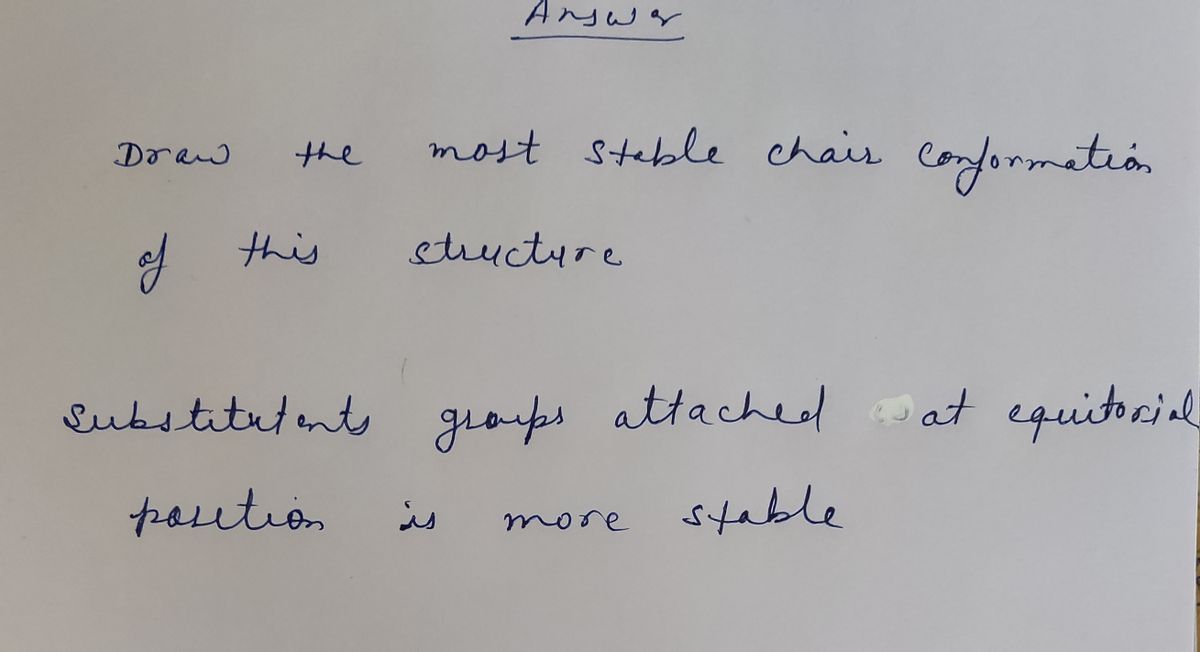 Answer
Draw the most stable chair conformation
of this structure
Substitutents groups attached at equitorial
position is more stable